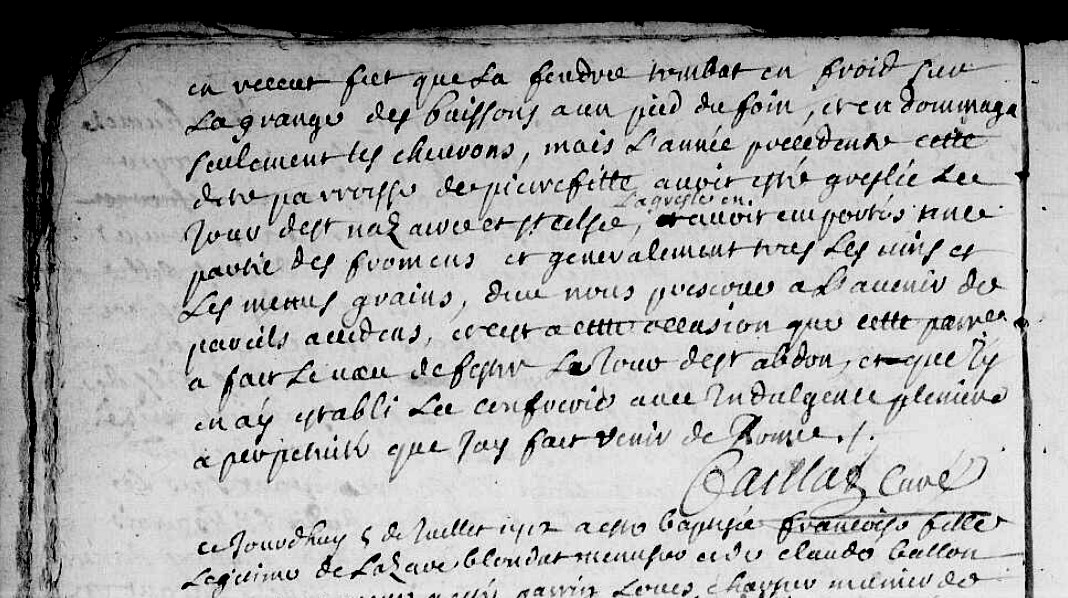 en receut fut que La foudre tombat en froid sur
La grange des buissons a un pied du foin, et en dommaga
seulement les cheurons, mais L'année precedente cette
dite parroisse de pierrefitte auoit esté greslée Le
Jour de st nazaire et st Celse, La gresle en auoit emportés une
partie des fromens et generalement tous Les uins et
Les menus grains, dieu nous preserue a L'auenir de
pareils accidens, et c'est a cette occasion que cette parroi
a fait Le uœu de fester Le Jour de st abdon, et que J'y
en ay establi La confrerie auec Indulgence pleniere
a perpetuité que J'ay fait venir de Rome ./.
Caillat Curé
ce Jourdhuy 5 de Juillet 1712 a esté baptisée francoise fille
Legitime de Lazare blondat et de claude ballon
parrin Louis charrier de